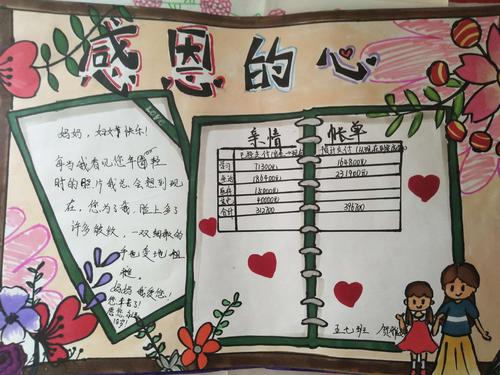 感恩的心
妈妈，妇女节快乐！
每当我看见您年轻
时的照片我总会想到现
在，您为了我，脸上多了
许多皱纹，一双细嫩的
手也变地粗
糙。
妈妈我爱您！
您辛苦了！
亲情 帐单
学习 71300元 164800元
生活 186400元 231900元
医疗
其它 40000元
合计 312700 396700
五七班